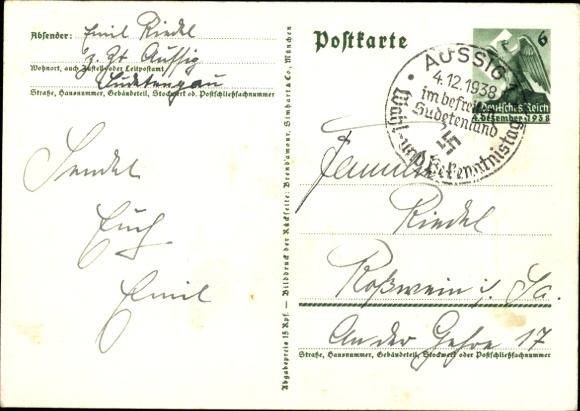 Absender: Emil Riedel
z. Zt Aussig
Wohnort, auch Zustell- oder Leitpostamt
Sudetengau
Straße, Hausnummer, Gebäudeteil, Stockwerk od. Postschließfachnummer
Sendet
Euch
Emil
Abgabepreis 15 Rpf. — Bilddruck der Rückseite: Brend'amour, Simhart & Co., München
Postkarte
6
Deutsches Reich
4. Dezember 1938
AUSSIG
4.12.1938
im befreiten
Sudetenland
Wahl- und Bekenntnistag
Familie
Riedel
Roßwein i. Sa.
An der Gehre 17
Straße, Hausnummer, Gebäudeteil, Stockwerk oder Postschließfachnummer